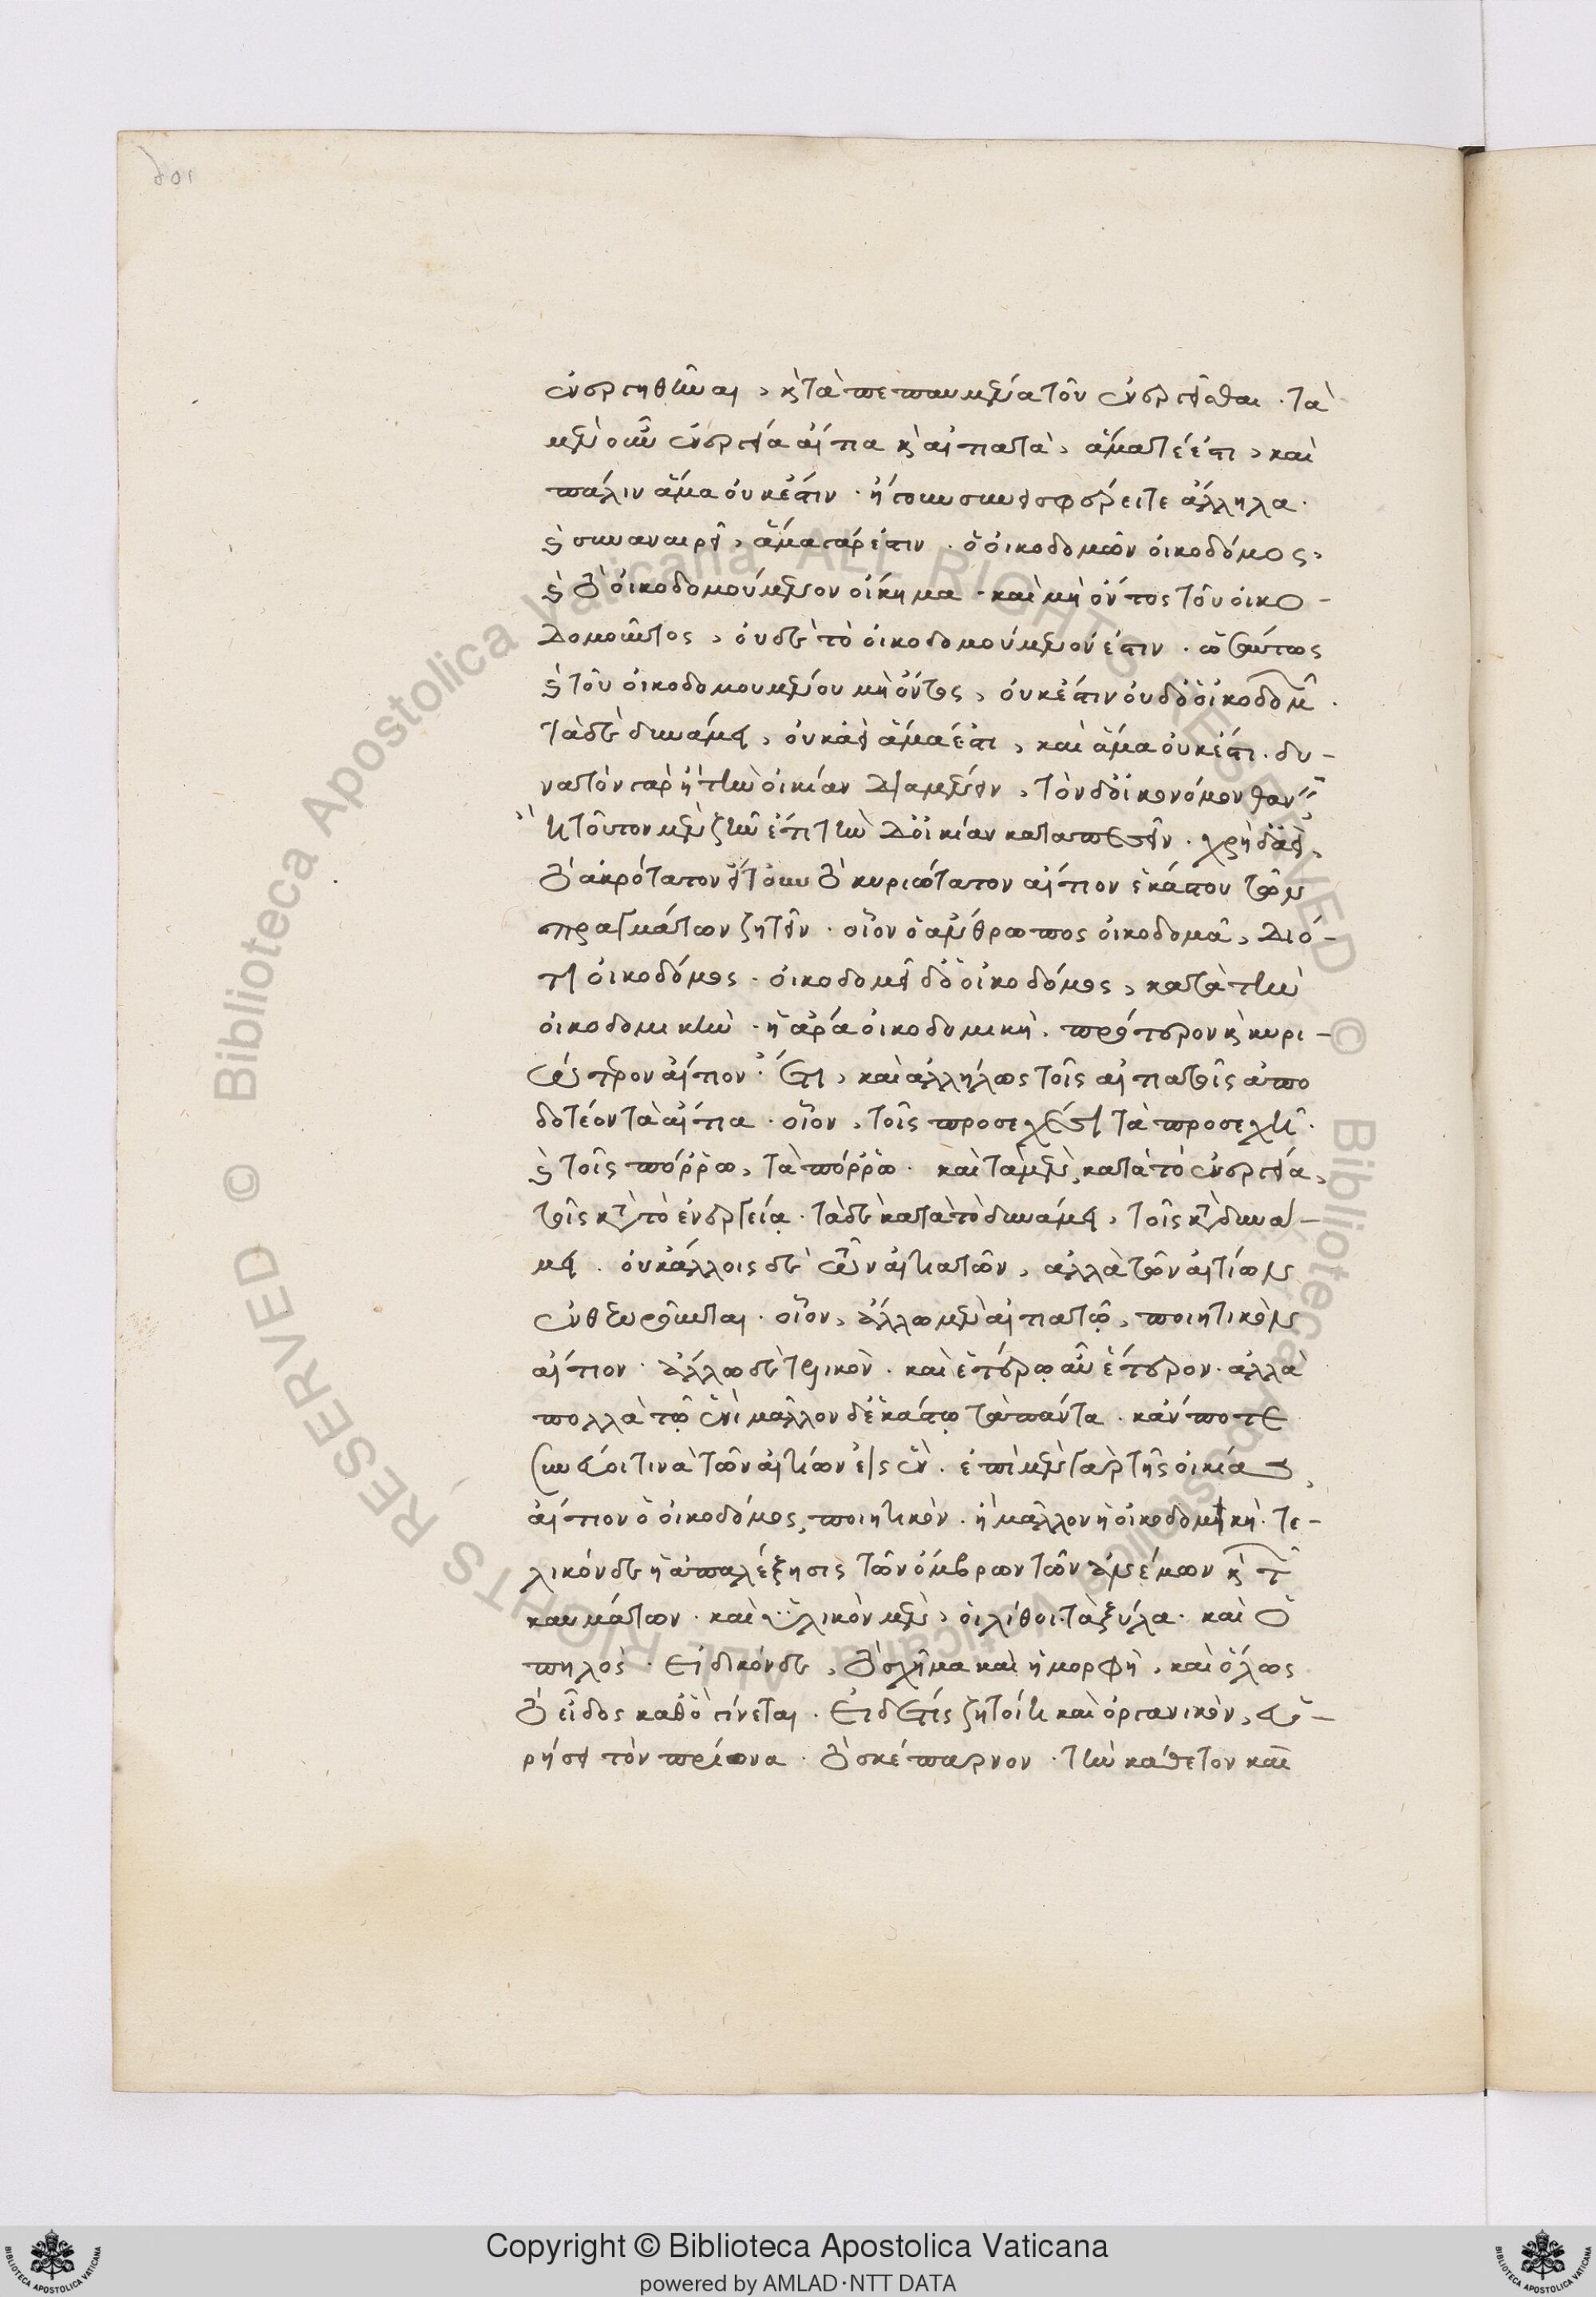 ἐνεργηθῆναι, καὶ τὰ πεπαυμένα τοῦ ἐνεργεῖσθαι. τὰ
μὲν οὖν ἐνεργείᾳ αἴτια καὶ αἰτιατὰ, ἅμα τέ ἐστι, καὶ
πάλιν ἅμα οὐκ ἔστιν. ἤτοι συνεισφέρει τε ἄλληλα.
καὶ συναναιρεῖ, ἅμα γάρ ἐστιν. ὁ οἰκοδομῶν οἰκοδόμος,
καὶ τὸ οἰκοδομούμενον οἴκημα. καὶ μὴ ὄντος τοῦ οἰκο-
δομοῦντος, οὐδὲ τὸ οἰκοδομούμενόν ἐστιν. ὡσαύτως
καὶ τοῦ οἰκοδομουμένου μὴ ὄντος, οὐκ ἔστιν οὐδ' ὁ οἰκοδομῶν.
τὰ δὲ δυνάμει, οὐκ ἀεὶ ἅμα ἐστι, καὶ ἅμα οὐκ ἔστι. δυ-
νατὸν γὰρ ἢ τὴν οἰκίαν διαμένειν, τὸν δ' οἰκονόμον θαν
ἢ τοῦτον μὲν ζῆν ἔτι τὴν δ' οἰκίαν καταπεσεῖν. χρὴ δ' ἀεὶ,
τὸ ἀκρότατον εἴτουν τὸ κυριώτατον αἴτιον ἑκάστου τῶν
πραγμάτων ζητεῖν. οἷον ὁ ἄνθρωπος οἰκοδομεῖ, διό-
τι οἰκοδόμος. οἰκοδομεῖ δ' ὁ οἰκοδόμος, κατὰ τὴν
οἰκοδομικὴν. ἡ ἄρα οἰκοδομικὴ. πρότερον καὶ κυρι-
ώτερον αἴτιον. ἔτι, καταλλήλως τοῖς αἰτιατοῖς ἀπο
δοτέον τὰ αἴτια. οἷον, τοῖς προσεχέσι τὰ προσεχῆ.
καὶ τοῖς πόῤῥω, τὰ πόῤῥω. καὶ τὰ μὲν, κατὰ τὸ ἐνεργείᾳ,
τοῖς κατὰ τὸ ἐνεργείᾳ. τὰ δὲ κατὰ τὸ δυνάμει, τοῖς κατὰ δυνά-
μει. οὐκ ἄλλοις δὲ τῶν αἰτιατῶν, ἄλλα τῶν αἰτίων
ἐνθεωροῦνται. οἷον, ἄλλῳ μὲν αἰτιατῷ, ποιητικὸν
αἴτιον. ἄλλῳ δὲ τελικὸν. καὶ ἑτέρῳ αὖ ἕτερον. ἀλλὰ
πολλὰ τῷ ἑνὶ μᾶλλον δ' ἑκάστῳ τὰ πάντα. κἄν ποτε
συνίοι τινὰ τῶν αἰτίων εἰς ἓν. ἐπὶ μὲν γὰρ τῆς οἰκίας,
αἴτιον ὁ οἰκοδόμος, ποιητικόν. ἢ μᾶλλον ἡ οἰκοδομικὴ. τε-
λικὸν δὲ ἡ ἀπαλέξησις τῶν ὄμβρων τῶν ἀνέμων καὶ τῶν
καυμάτων. καὶ ὑλικὸν μὲν, οἱ λίθοι. τὰ ξύλα. καὶ ὁ
πηλός. εἰδικὸν δὲ, τὸ σχῆμα καὶ ἡ μορφὴ, καὶ ὅλως
τὸ εἶδος καθ' ὃ γίνεται. εἰ δέ τις ζητοίη καὶ ὀργανικὸν, εὑ-
ρήσει τὸν πρίονα. τὸ σκέπαρνον. τὴν κάθετον καὶ